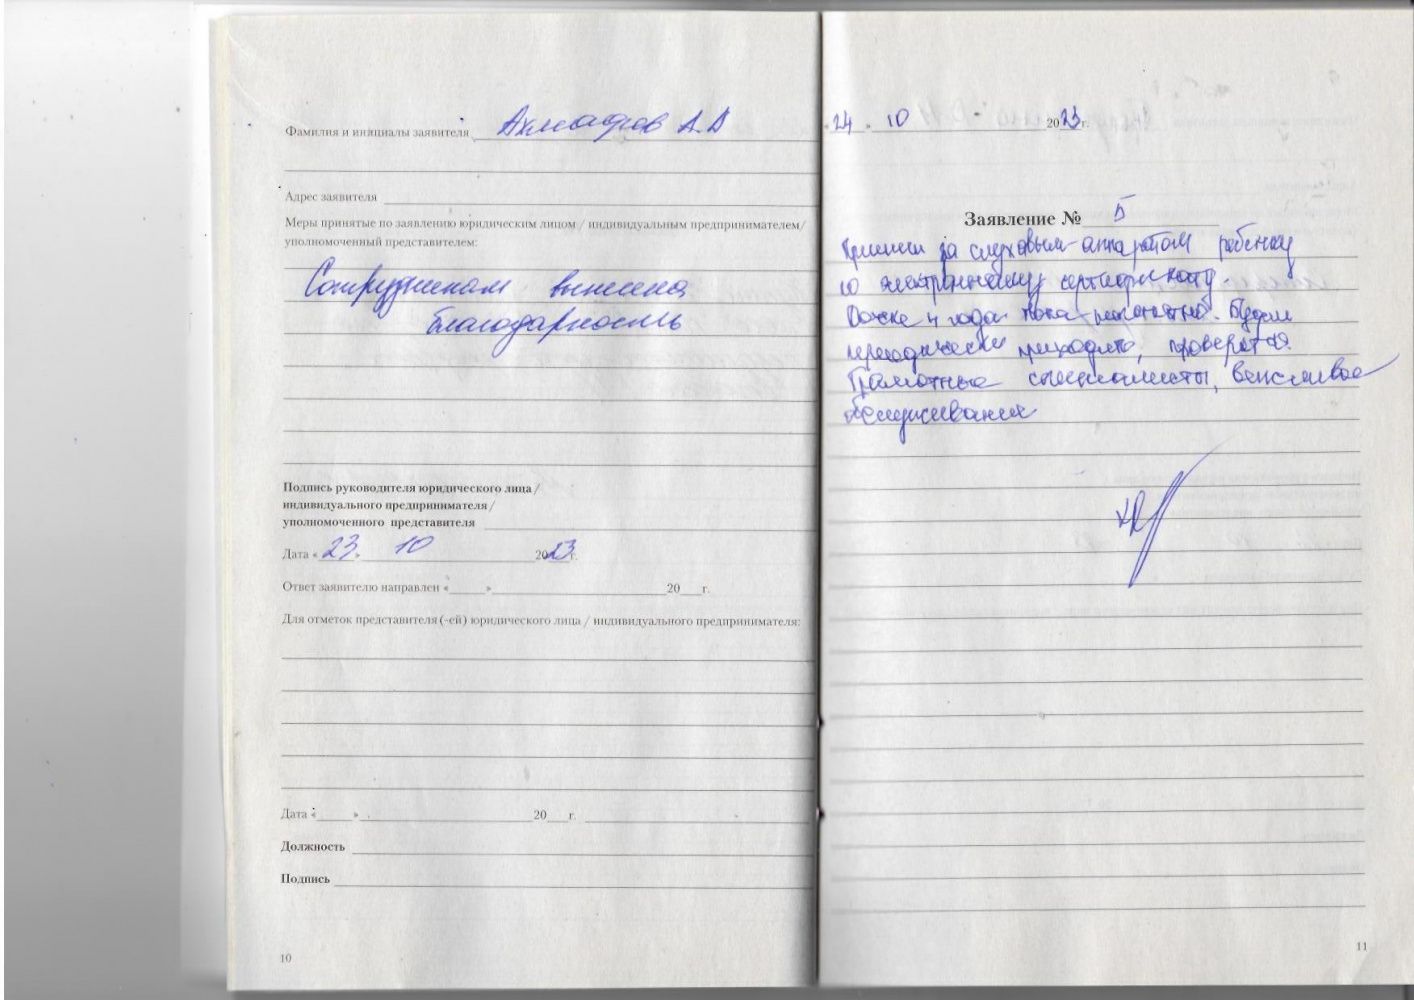 Фамилия и инициалы заявителя Ахмадров А.А
Адрес заявителя
Меры принятые по заявлению юридическим лицом / индивидуальным предпринимателем/
уполномоченный представителем:
Сотрудникам вынесена
благодарность
Подпись руководителя юридического лица /
индивидуального предпринимателя /
уполномоченного представителя
Дата « 23 » 10 2023 г.
Ответ заявителю направлен « » 20 г.
Для отметок представителя (-ей) юридического лица / индивидуального предпринимателя:
Дата « » 20 г.
Должность
Подпись
10
« 24 » 10 2023 г.
Заявление № 5
Пришли за слуховым аппаратом ребенку
по электронному сертификату.
Дочке 4 года пока непонятно. Будем
периодически приходить, проверятся.
Грамотные специалисты, вежливое
обслуживание
11